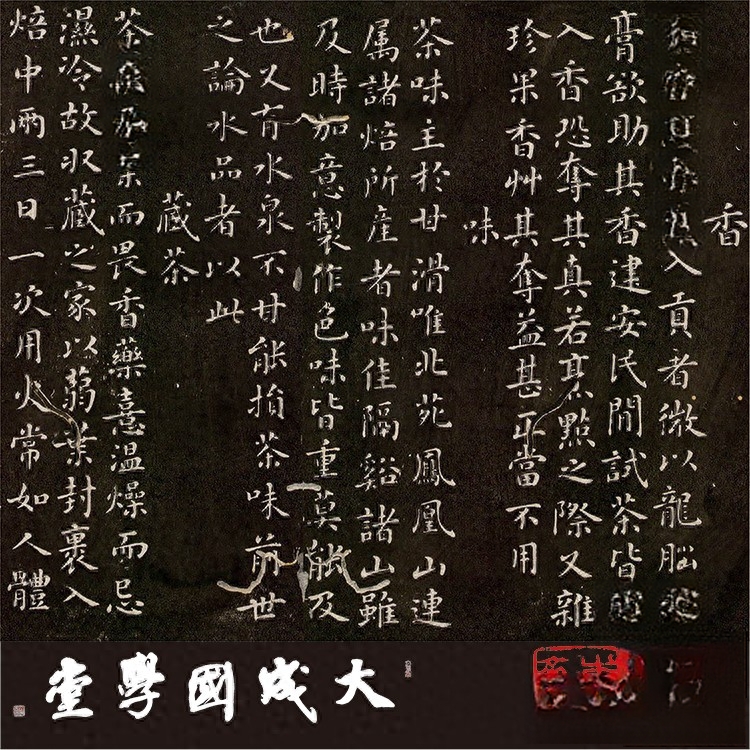 香
入貢者微以龍腦
膏欲助其香建安民間試茶皆
入香恐奪其真若烹點之際又雜
珍果香艸其奪益甚正當不用
味
茶味主於甘滑唯北苑鳳凰山連
属諸焙所産者味佳隔谿諸山雖
及時加意製作色味皆重莫能及
也又有水泉不甘能損茶味前世
之論水品者以此
藏茶
茶而畏香藥憙温燥而忌
濕冷故収藏之家以蒻葉封裹入
焙中兩三日一次用火常如人體
大成國學堂